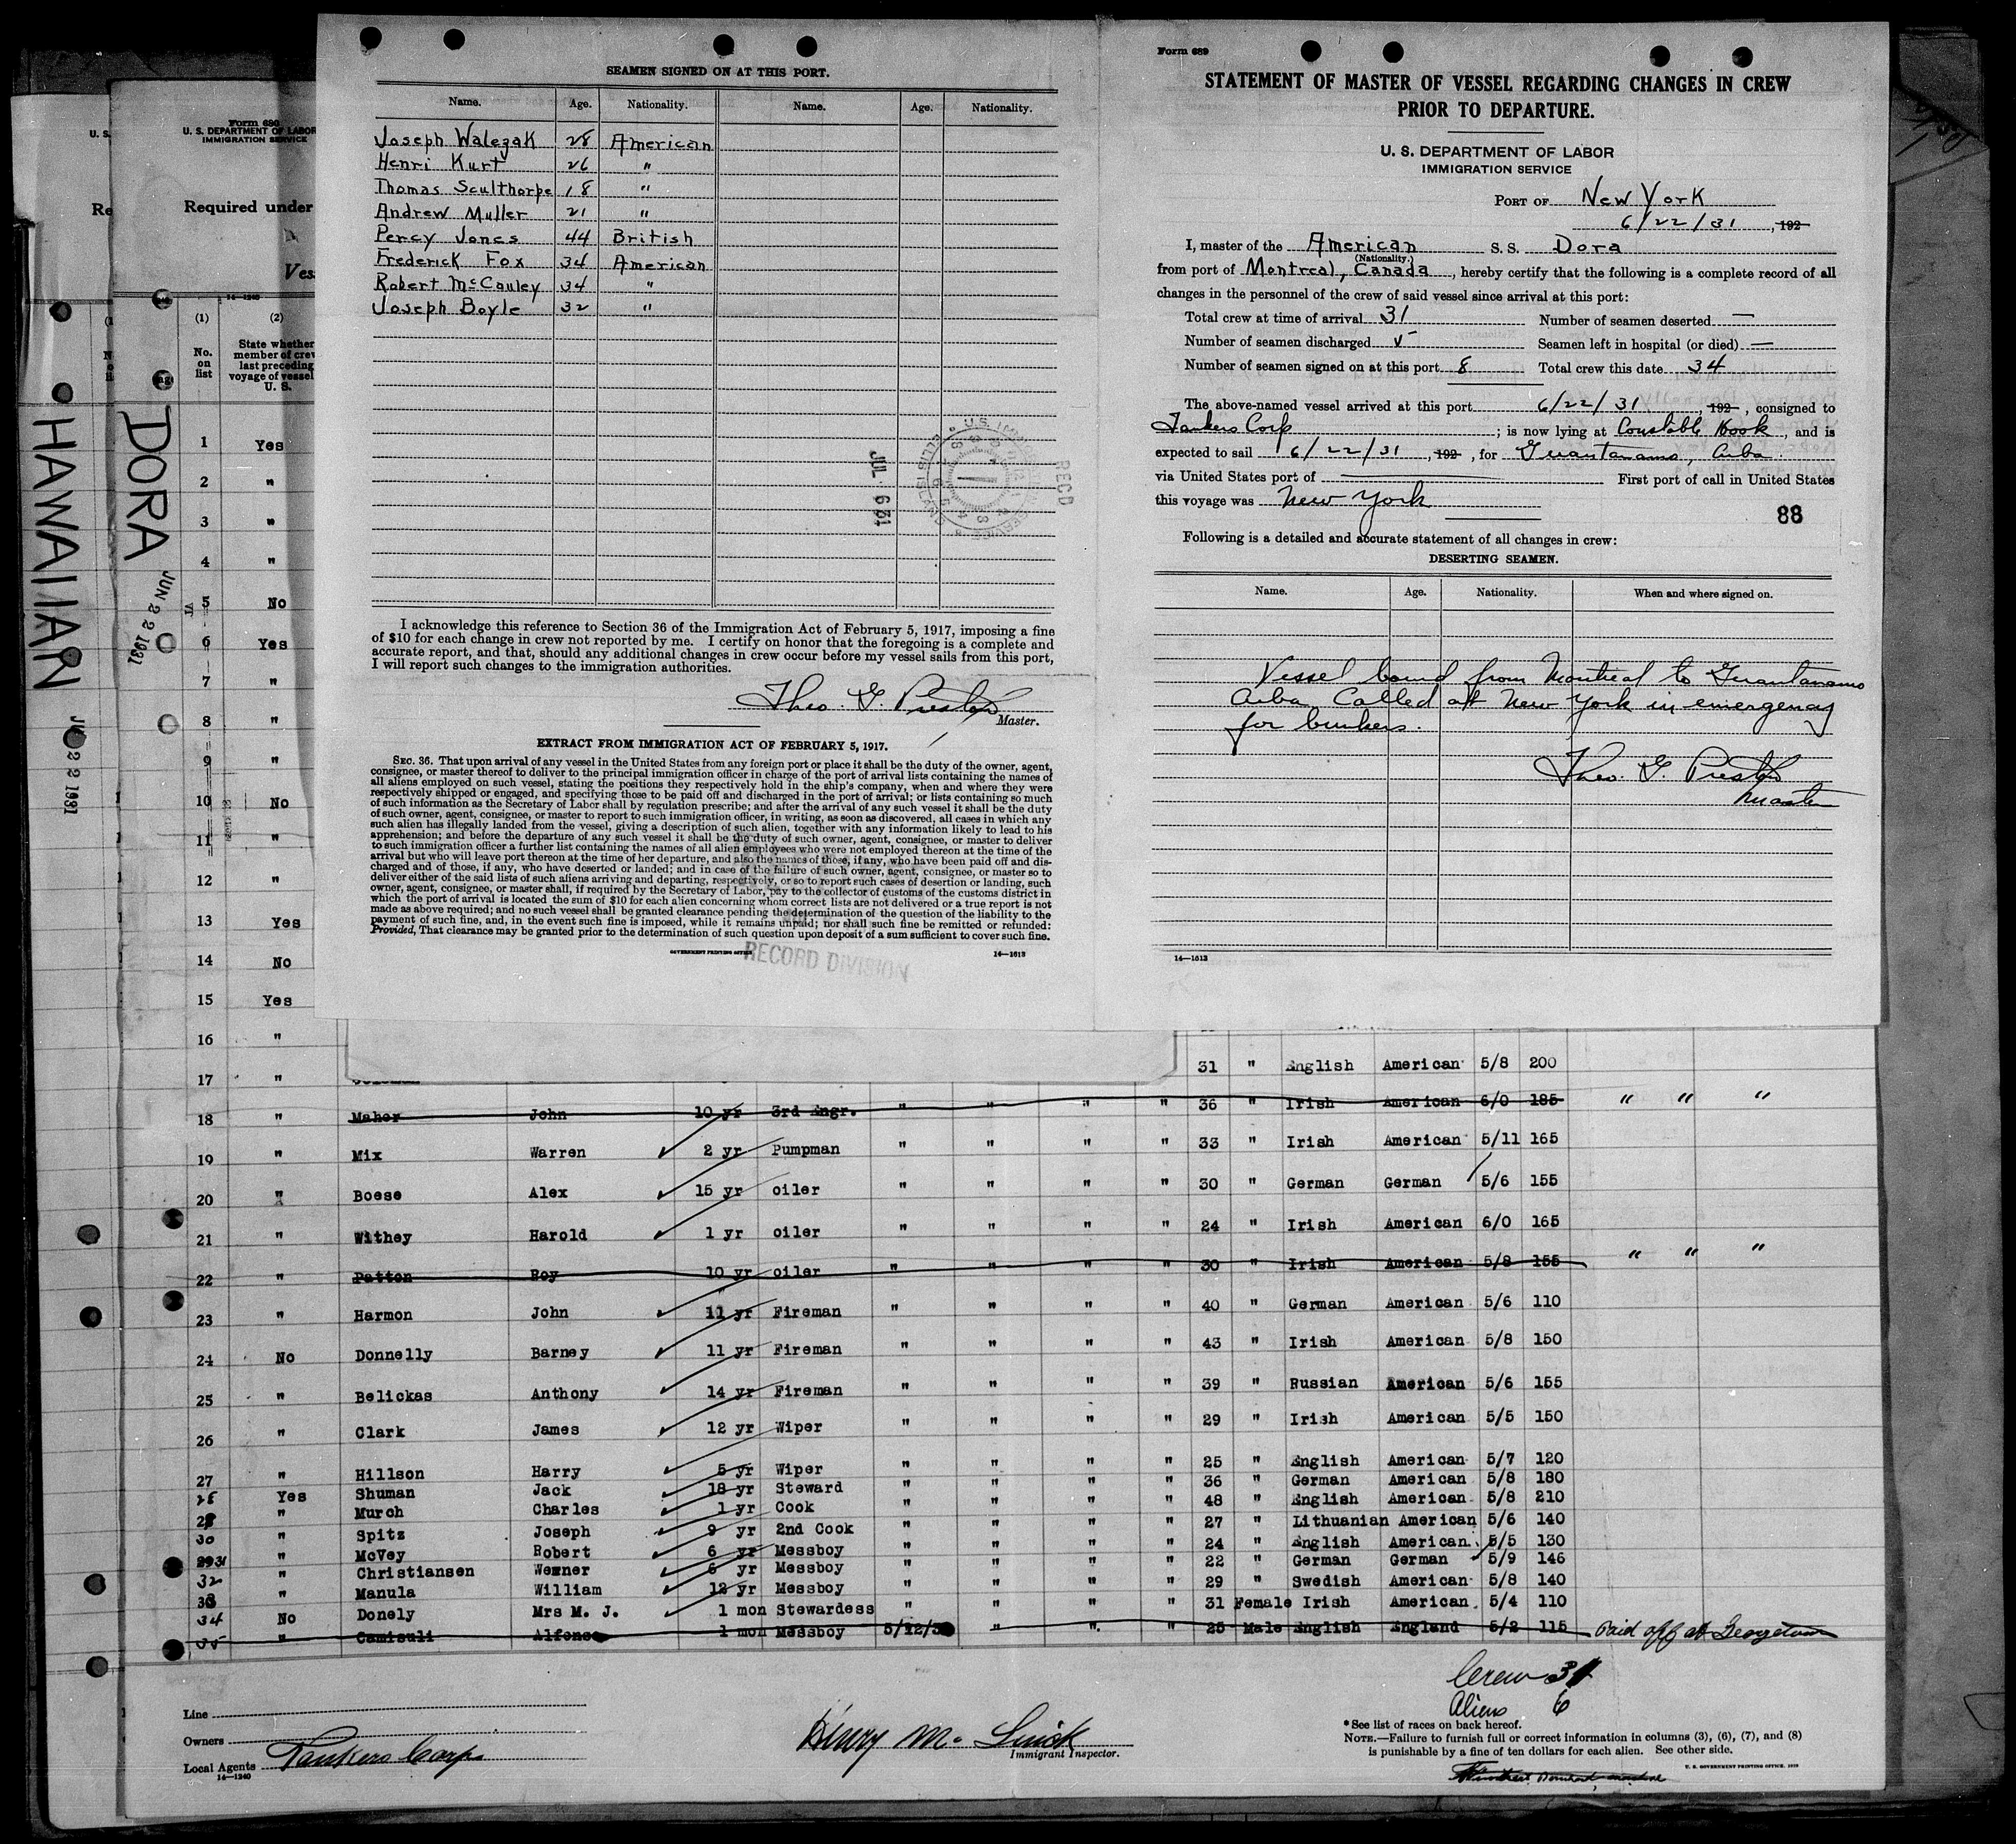 HAWAIIAN
DORA
JUN 22 1931
Form 680
U. S. DEPARTMENT OF LABOR
IMMIGRATION SERVICE
Required under
(1) (2)
No. on list
State whether member of crew last preceding voyage of vessel U. S.
1 Yes
2 "
3 "
4 "
5 No
6 Yes
7 "
8 "
9 "
10 No
11 "
12 "
13 Yes
14 No
15 Yes
16 "
17 "
SEAMEN SIGNED ON AT THIS PORT.
Name. Age. Nationality. Name. Age. Nationality.
Joseph Walezak 28 American
Henri Kurt 26 "
Thomas Sculthorpe 18 "
Andrew Muller 21 "
Percy Jones 44 British
Frederick Fox 34 American
Robert McCauley 34 "
Joseph Boyle 32 "
JUL 6 1931
RECD
I acknowledge this reference to Section 36 of the Immigration Act of February 5, 1917, imposing a fine
of $10 for each change in crew not reported by me. I certify on honor that the foregoing is a complete and
accurate report, and that, should any additional changes in crew occur before my vessel sails from this port,
I will report such changes to the immigration authorities.
Theo. G. Preston
Master.
EXTRACT FROM IMMIGRATION ACT OF FEBRUARY 5, 1917.
SEC. 36. That upon arrival of any vessel in the United States from any foreign port or place it shall be the duty of the owner, agent,
consignee, or master thereof to deliver to the principal immigration officer in charge of the port of arrival lists containing the names of
all aliens employed on such vessel, stating the positions they respectively hold in the ship's company, when and where they were
respectively shipped or engaged, and specifying those to be paid off and discharged in the port of arrival; or lists containing so much
of such information as the Secretary of Labor shall by regulation prescribe; and after the arrival of any such vessel it shall be the duty
of such owner, agent, consignee, or master to report to such immigration officer, in writing, as soon as discovered, all cases in which any
such alien has illegally landed from the vessel, giving a description of such alien, together with any information likely to lead to his
apprehension; and before the departure of any such vessel it shall be the duty of such owner, agent, consignee, or master to deliver
to such immigration officer a further list containing the names of all alien employees who were not employed thereon at the time of the
arrival but who will leave port thereon at the time of her departure, and also the names of those, if any, who have been paid off and dis-
charged and of those, if any, who have deserted or landed; and in case of the failure of such owner, agent, consignee, or master so to
deliver either of the said lists of such aliens arriving and departing, respectively, or so to report such cases of desertion or landing, such
owner, agent, consignee, or master shall, if required by the Secretary of Labor, pay to the collector of customs of the customs district in
which the port of arrival is located the sum of $10 for each alien concerning whom correct lists are not delivered or a true report is not
made as above required; and no such vessel shall be granted clearance pending the determination of the question of the liability to the
payment of such fine, and, in the event such fine is imposed, while it remains unpaid; nor shall such fine be remitted or refunded:
Provided, That clearance may be granted prior to the determination of such question upon deposit of a sum sufficient to cover such fine.
GOVERNMENT PRINTING OFFICE 14—1613
RECORD DIVISION
Form 689
STATEMENT OF MASTER OF VESSEL REGARDING CHANGES IN CREW
PRIOR TO DEPARTURE.
U. S. DEPARTMENT OF LABOR
IMMIGRATION SERVICE
PORT OF New York
6/22/31, 192
I, master of the American S. S. Dora
(Nationality.)
from port of Montreal, Canada, hereby certify that the following is a complete record of all
changes in the personnel of the crew of said vessel since arrival at this port:
Total crew at time of arrival 31 Number of seamen deserted —
Number of seamen discharged 5 Seamen left in hospital (or died) —
Number of seamen signed on at this port 8 Total crew this date 34
The above-named vessel arrived at this port 6/22/31, 192, consigned to
Tankers Corp; is now lying at Constable Hook, and is
expected to sail 6/22/31, 192, for Guantanamo, Cuba.
via United States port of First port of call in United States
this voyage was New York
88
Following is a detailed and accurate statement of all changes in crew:
DESERTING SEAMEN.
Name. Age. Nationality. When and where signed on.
Vessel bound from Montreal to Guantanamo
Cuba. Called at New York in emergency
for bunkers.
Theo. G. Preston
Master
14—1613
31 " English American 5/8 200
18 " Maher John 10 yr 3rd Engr. " " " " 36 " Irish American 6/0 185 " " "
19 " Mix Warren 2 yr Pumpman " " " " 33 " Irish American 5/11 165
20 " Boese Alex 15 yr oiler " " " " 30 " German German 5/6 155
21 " Withey Harold 1 yr oiler " " " " 24 " Irish American 6/0 165
22 " Patton Roy 10 yr oiler " " " " 30 " Irish American 5/8 155 " " "
23 " Harmon John 11 yr Fireman " " " " 40 " German American 5/6 110
24 No Donnelly Barney 11 yr Fireman " " " " 43 " Irish American 5/8 150
25 " Belickas Anthony 14 yr Fireman " " " " 39 " Russian American 5/6 155
26 " Clark James 12 yr Wiper " " " " 29 " Irish American 5/5 150
27 " Hillson Harry 5 yr Wiper " " " " 25 " English American 5/7 120
28 Yes Shuman Jack 18 yr Steward " " " " 36 " German American 5/8 180
29 " Murch Charles 1 yr Cook " " " " 48 " English American 5/8 210
30 " Spitz Joseph 9 yr 2nd Cook " " " " 27 " Lithuanian American 5/6 140
31 " McVey Robert 6 yr Messboy " " " " 24 " English American 5/5 130
32 " Christiansen Werner 6 yr Messboy " " " " 22 " German German 5/9 146
33 " Manula William 12 yr Messboy " " " " 29 " Swedish American 5/8 140
34 No Donely Mrs M. J. 1 mon Stewardess " " " " 31 Female Irish American 5/4 110
35 " Camisuli Alfonso 1 mon Messboy 5/12/3 " " " 25 Male English England 5/2 115 Paid off at Georgetown
Crew 31
Aliens 6
Line
Owners
Local Agents Tankers Corp
14—1240
Immigrant Inspector.
*See list of races on back hereof.
NOTE.—Failure to furnish full or correct information in columns (3), (6), (7), and (8)
is punishable by a fine of ten dollars for each alien. See other side.
U. S. GOVERNMENT PRINTING OFFICE